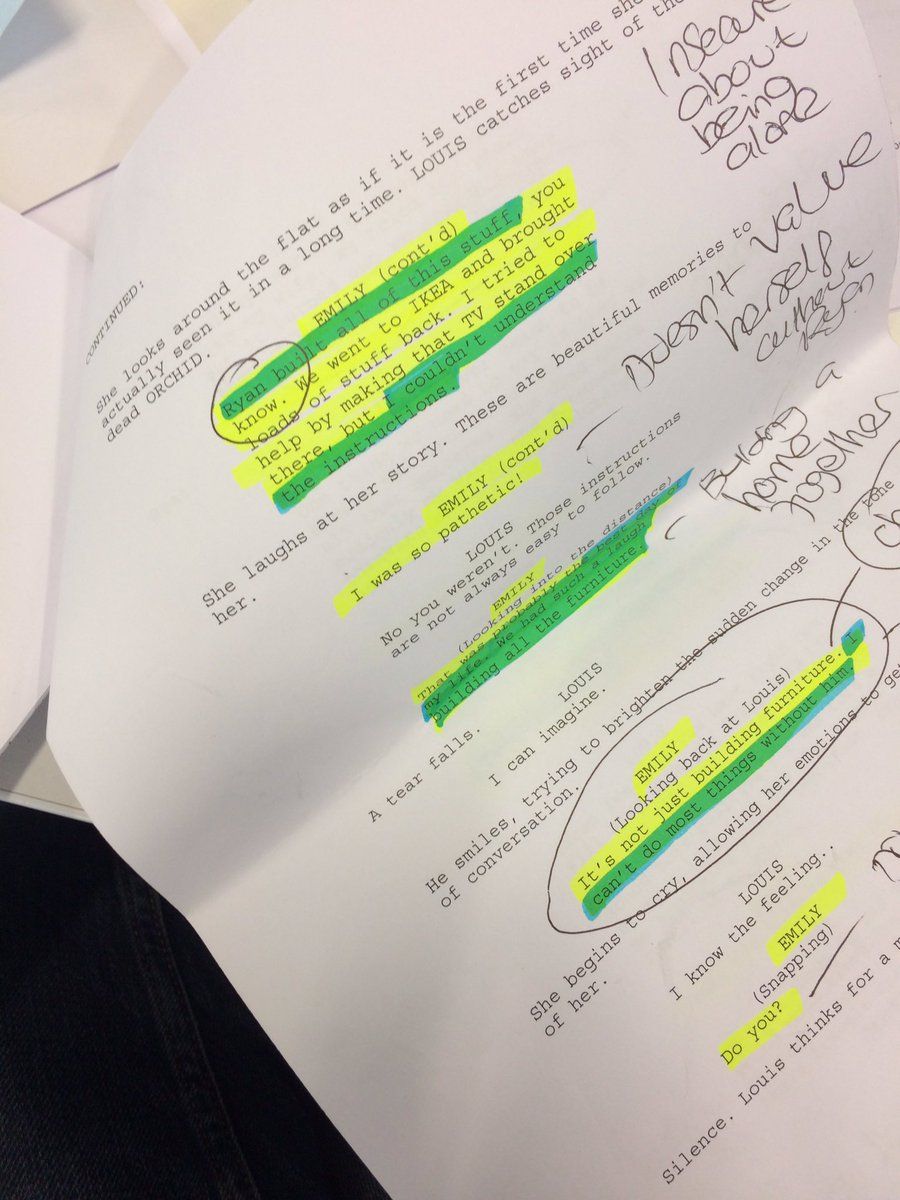 CONTINUED:
She looks around the flat as if it is the first time she
actually seen it in a long time. LOUIS catches sight of the
dead ORCHID.
Insecure
about
being
alone
EMILY (cont'd)
Ryan built all of this stuff, you
know. We went to IKEA and brought
loads of stuff back. I tried to
help by making that TV stand over
there, but I couldn't understand
the instructions.
Doesn't value
herself
without
Ryan.
She laughs at her story. These are beautiful memories to
her.
EMILY (cont'd)
I was so pathetic!
LOUIS
No you weren't. Those instructions
are not always easy to follow.
Building a
home
together
EMILY
(Looking into the distance)
That was probably the best day of
my life. We had such a laugh
building all the furniture.
A tear falls.
LOUIS
I can imagine.
He smiles, trying to brighten the sudden change in the tone
of conversation.
EMILY
(Looking back at Louis)
It's not just building furniture. I
can't do most things without him.
She begins to cry, allowing her emotions to get
of her.
LOUIS
I know the feeling..
EMILY
(Snapping)
Do you?
Silence. Louis thinks for a